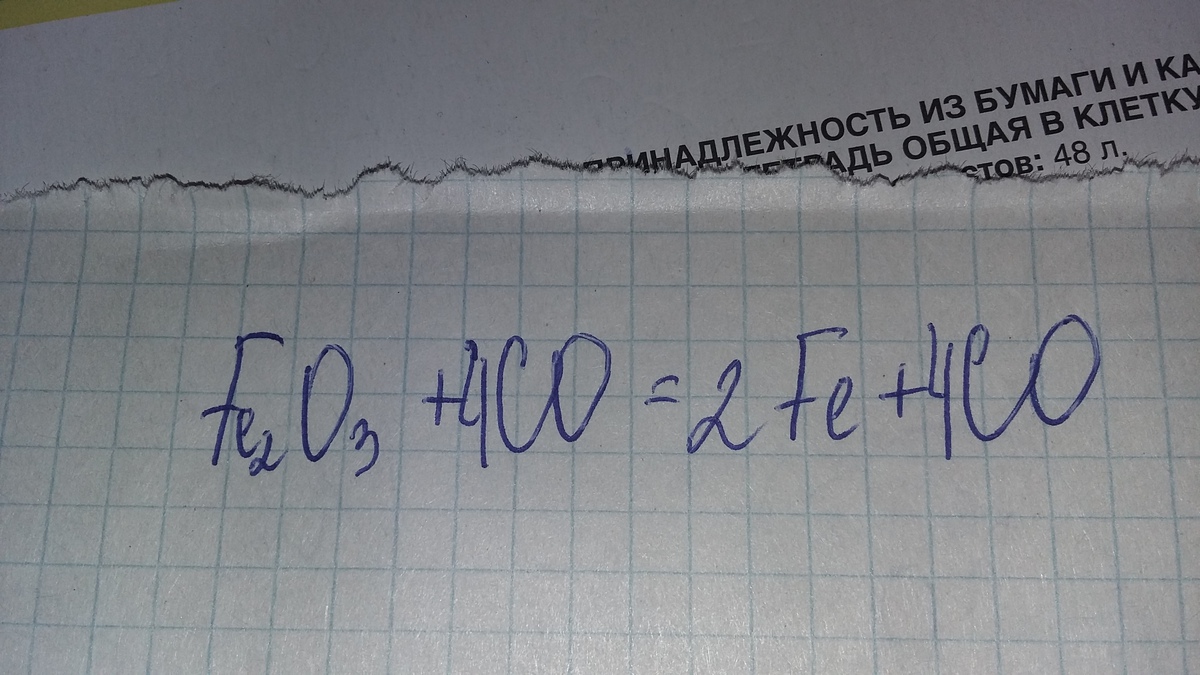 ПРИНАДЛЕЖНОСТЬ ИЗ БУМАГИ И КА
ТЕТРАДЬ ОБЩАЯ В КЛЕТКУ
стов: 48 л.
Fe₂O₃ +4CO = 2Fe +4CO